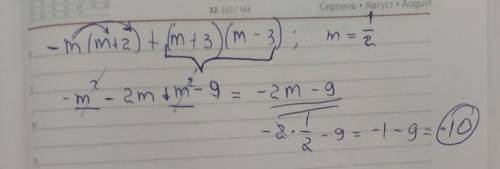 32 222 / 144 Серпень • Август • August
-m(m+2) + (m+3)(m-3); m = 1/2
-m² - 2m + m² - 9 = -2m - 9
-2 · 1/2 - 9 = -1 - 9 = -10